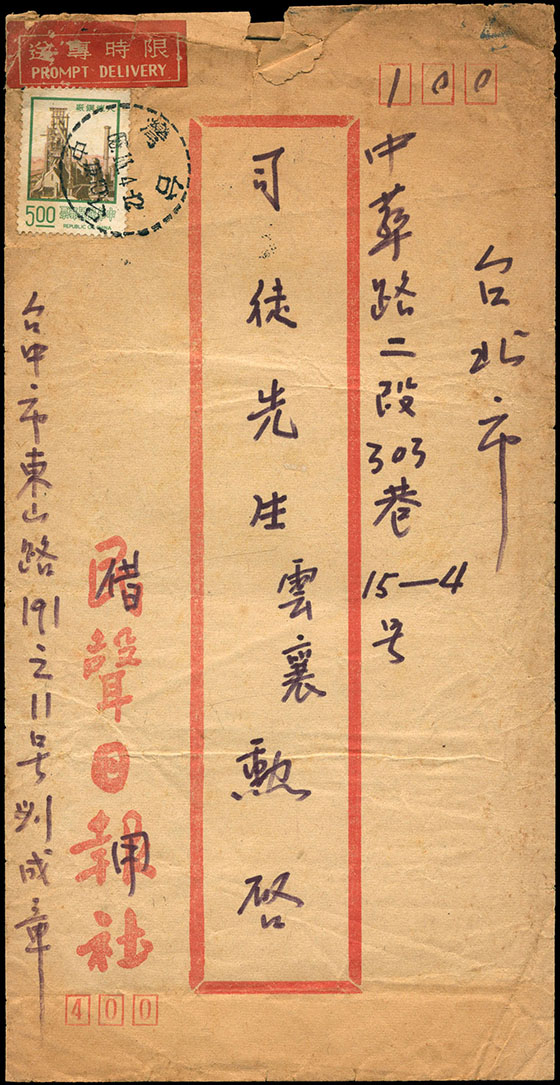 限時專送
PROMPT DELIVERY
5.00
REPUBLIC OF CHINA
台灣
100
台北市
中華路二段303巷
15—4号
司徒先生雲襄勲啓
國聲日報社
借用
台中市東山路191之11号刘成章
400